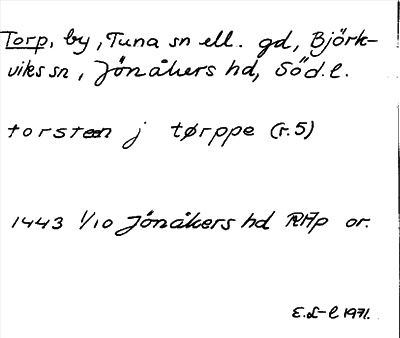 Torp, by, Tuna sn ell. gd, Björk-
viks sn, Jönåkers hd, Söd. l.
torsteen j tørppe (r. 5)
1443 1/10 Jönåkers hd RAp or.
E. L-l 1971.